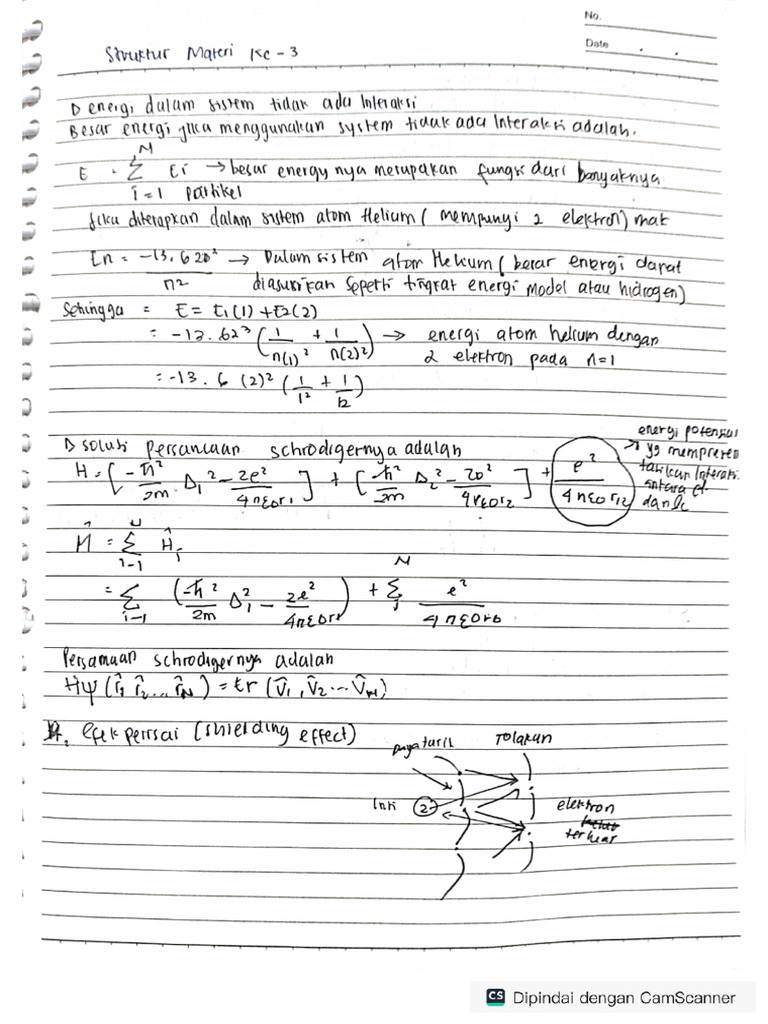 No.
Date
Struktur Materi Ke - 3
D energi dalam sistem tidak ada Interaksi
Besar energi jika menggunakan system tidak ada Interaksi adalah.
E = N Σ i=1 Ei → besar energy nya merupakan fungsi dari banyaknya
partikel
Jika diterapkan dalam sistem atom Helium ( mempunyi 2 elektron) mak
En = -13,6 20² / n² → Dalam sistem atom Helium ( besar energi dapat
diasumikan seperti tingkat energi model atau hidrogen)
Sehingga = E = E1(1) + E2(2)
= -13.6z³ ( 1/n(1)² + 1/n(2)² ) → energi atom helium dengan
2 elektron pada n=1
= -13.6 (2)² ( 1/1² + 1/12 )
D solusi Persamaan schrodigernya adalah
energi potensial
yg mempresen
tasikan Interaksi
antara e1
dan
H = [ -ħ²/2m . Δ1² - 2e²/4πε0r1 ] + [ -ħ²/2m Δ2² - 2e²/4πε0r2 ] + e²/4πε0r12
Ĥ = N Σ i-1 Ĥi
= Σ i-1 ( -ħ²/2m Δ1² - 2e²/4πε0r1 ) + N Σ j e²/4πε0r
Persamaan schrodigernya adalah
Ĥψ (r̂1 r̂2 ... r̂N ) = Er (v̂1, v̂2 ... v̂N)
Efek perisai (shielding effect)
Daya tarik
Tolakan
Inti
2
elektron
terluar
CS Dipindai dengan CamScanner